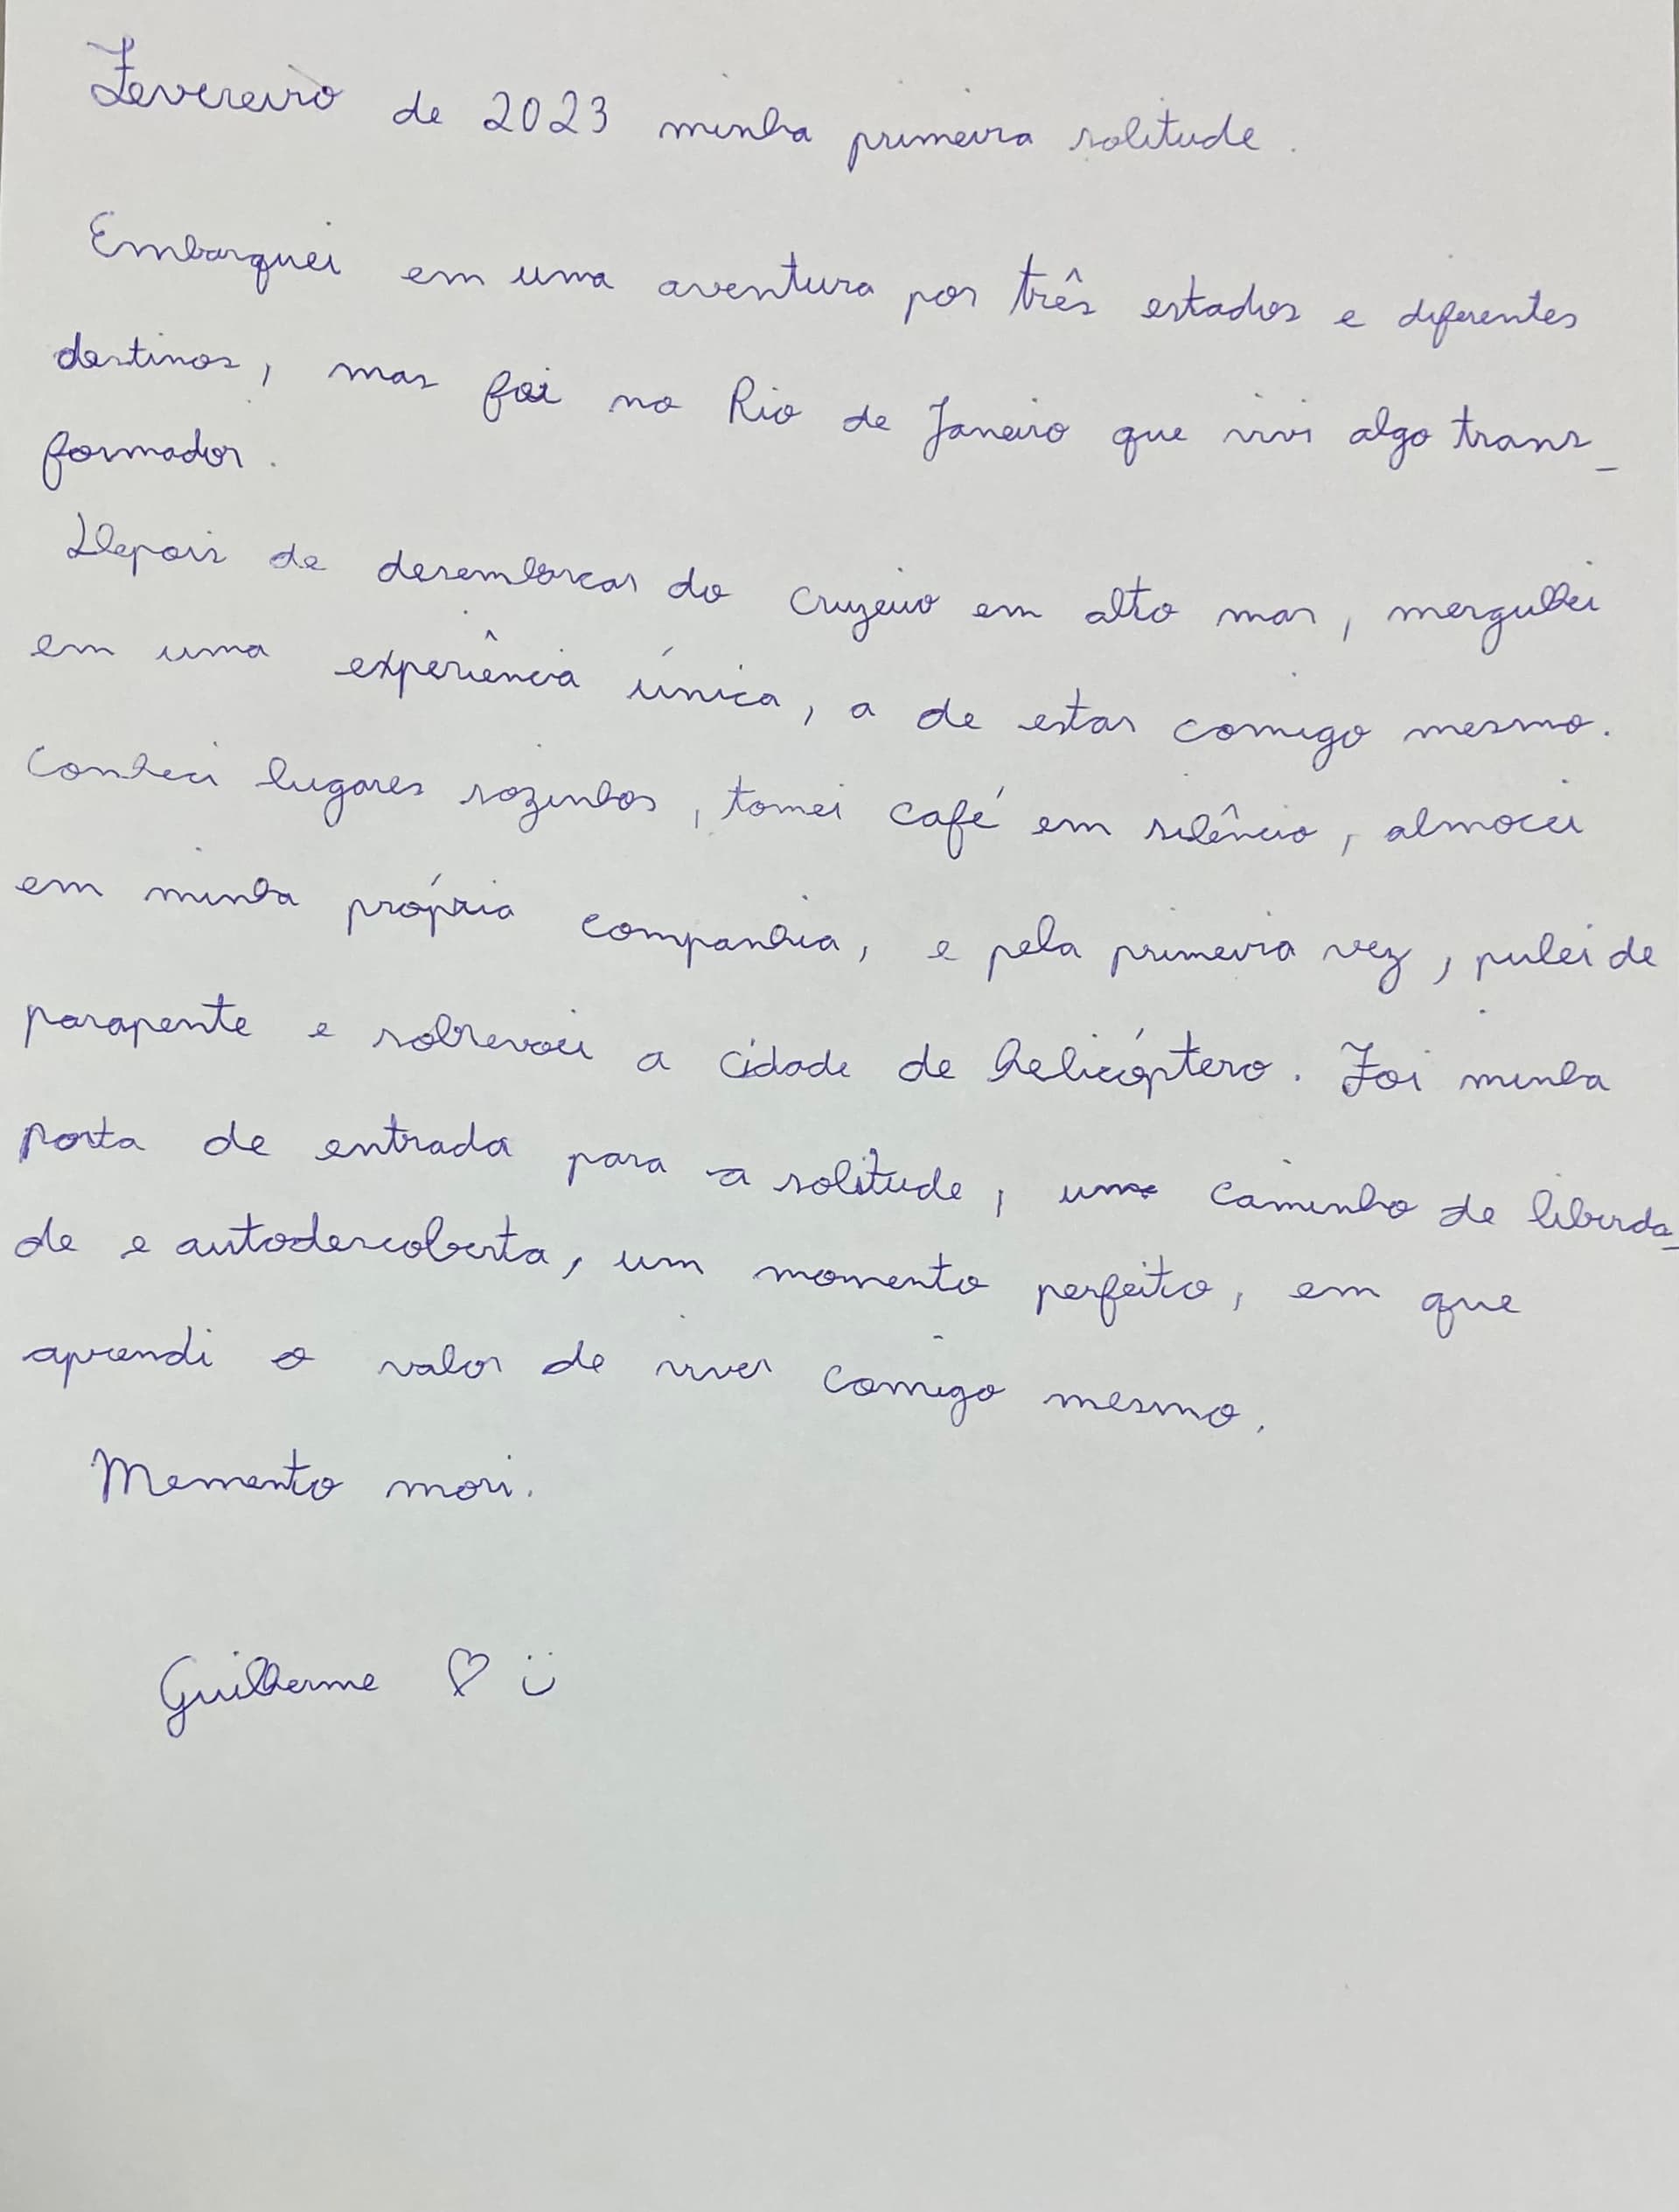 Fevereiro de 2023 minha primeira solitude.
Embarquei em uma aventura por três estados e diferentes
destinos, mas foi no Rio de Janeiro que vivi algo trans_
formador.
Depois de desembarcar do cruzeiro em alto mar, mergulhei
em uma experiência única, a de estar comigo mesmo.
Conheci lugares sozinhos, tomei café em silêncio, almocei
em minha própria companhia, e pela primeira vez, pulei de
parapente e sobrevoei a cidade de helicóptero. Foi minha
porta de entrada para a solitude, um caminho de liberda_
de e autodescoberta, um momento perfeito, em que
aprendi o valor de viver comigo mesmo.
Memento mori.
Guilherme ♡ :)